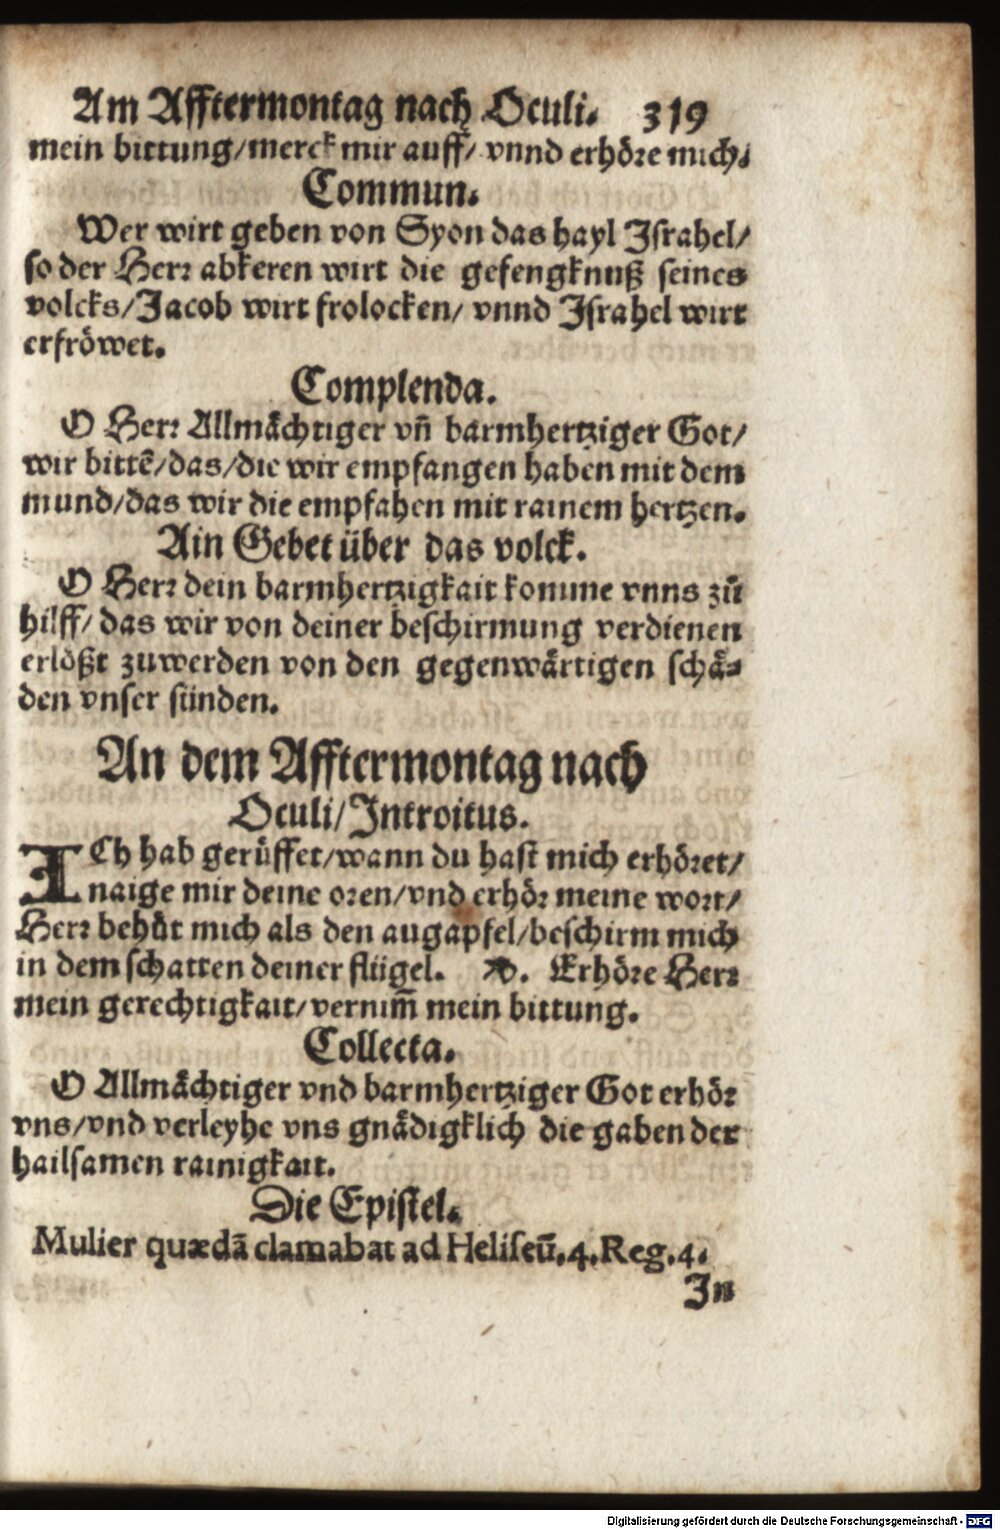 Am Afftermontag nach Oculi. 319
mein bittung/merck mir auff/ vnnd erhöre mich.
Commun.
Wer wirt geben von Syon das hayl Israhel/
so der Herr abkeren wirt die gefengknuß seines
volcks/Jacob wirt frolocken/ vnnd Israhel wirt
erfröwet.
Complenda.
O Herr Allmächtiger vñ barmhertziger Got/
wir bittē/das/die wir empfangen haben mit dem
mund/das wir die empfahen mit rainem hertzen.
Ain Gebet über das volck.
O Herr dein barmhertzigkait komme vnns zů
hilff/ das wir von deiner beschirmung verdienen
erlößt zuwerden von den gegenwärtigen schä⸗
den vnser sünden.
An dem Afftermontag nach
Oculi/Introitus.
ICh hab gerüffet/wann du hast mich erhöret/
naige mir deine oren/vnd erhör meine wort/
Herr behüt mich als den augapfel/beschirm mich
in dem schatten deiner flügel. ℣. Erhöre Herr
mein gerechtigkait/vernim̄ mein bittung.
Collecta.
O Allmächtiger vnd barmhertziger Got erhör
vns/vnd verleyhe vns gnädigklich die gaben der
hailsamen rainigkait.
Die Epistel.
Mulier quædā clamabat ad Heliseū.4.Reg.4.
In
Digitalisierung gefördert durch die Deutsche Forschungsgemeinschaft - DFG